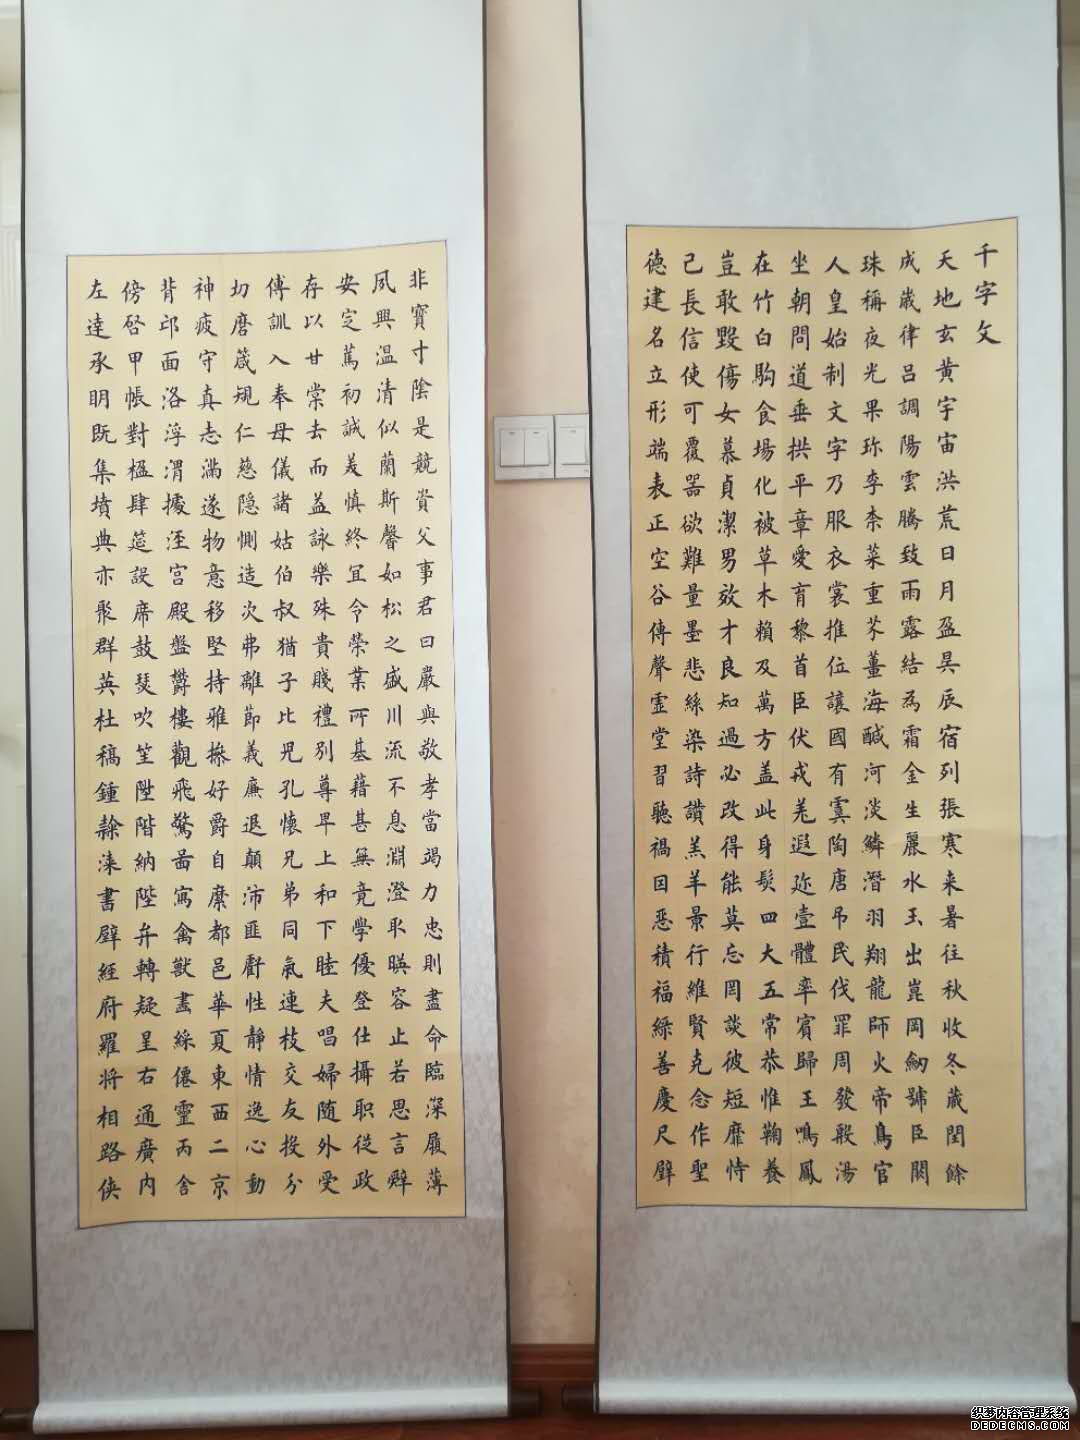 千字文
天地玄黄宇宙洪荒日月盈昃辰宿列張寒来暑往秋收冬藏閏餘
成歲律吕調陽雲騰致雨露結為霜金生麗水玉出崑岡劒號臣闕
珠稱夜光果珎李柰菜重芥薑海醎河淡鱗潛羽翔龍師火帝鳥官
人皇始制文字乃服衣裳推位讓國有虞陶唐吊民伐罪周發殷湯
坐朝問道垂拱平章愛育黎首臣伏戎羌遐迩壹體率賓歸王鳴鳳
在竹白駒食場化被草木賴及萬方盖此身髮四大五常恭惟鞠養
豈敢毀傷女慕貞潔男效才良知過必改得能莫忘罔談彼短靡恃
己長信使可覆器欲難量墨悲絲染詩讚羔羊景行維賢克念作聖
德建名立形端表正空谷傳聲虛堂習聽禍因惡積福緣善慶尺璧
非寶寸陰是競資父事君曰嚴與敬孝當竭力忠則盡命臨深履薄
夙興温清似蘭斯馨如松之盛川流不息淵澄取暎容止若思言辭
安定篤初誠美慎終宜令榮業所基藉甚無竟學優登仕攝职從政
存以甘棠去而益詠樂殊貴賤禮别尊卑上和下睦夫唱婦随外受
傅訓入奉母儀諸姑伯叔猶子比兒孔懷兄弟同氣連枝交友投分
切磨箴規仁慈隐惻造次弗離節義廉退顛沛匪虧性靜情逸心動
神疲守真志滿逐物意移堅持雅操好爵自縻都邑華夏東西二京
背邙面洛浮渭據涇宮殿盤鬱樓觀飛驚啚寫禽獸畫綵僊靈丙舍
傍啓甲帳對楹肆筵設席鼓瑟吹笙陞階納陛弁轉疑星右通廣内
左達承明既集墳典亦聚群英杜稿鍾隸漆書壁經府羅将相路侠
织梦内容管理系统
DEDECMS.COM